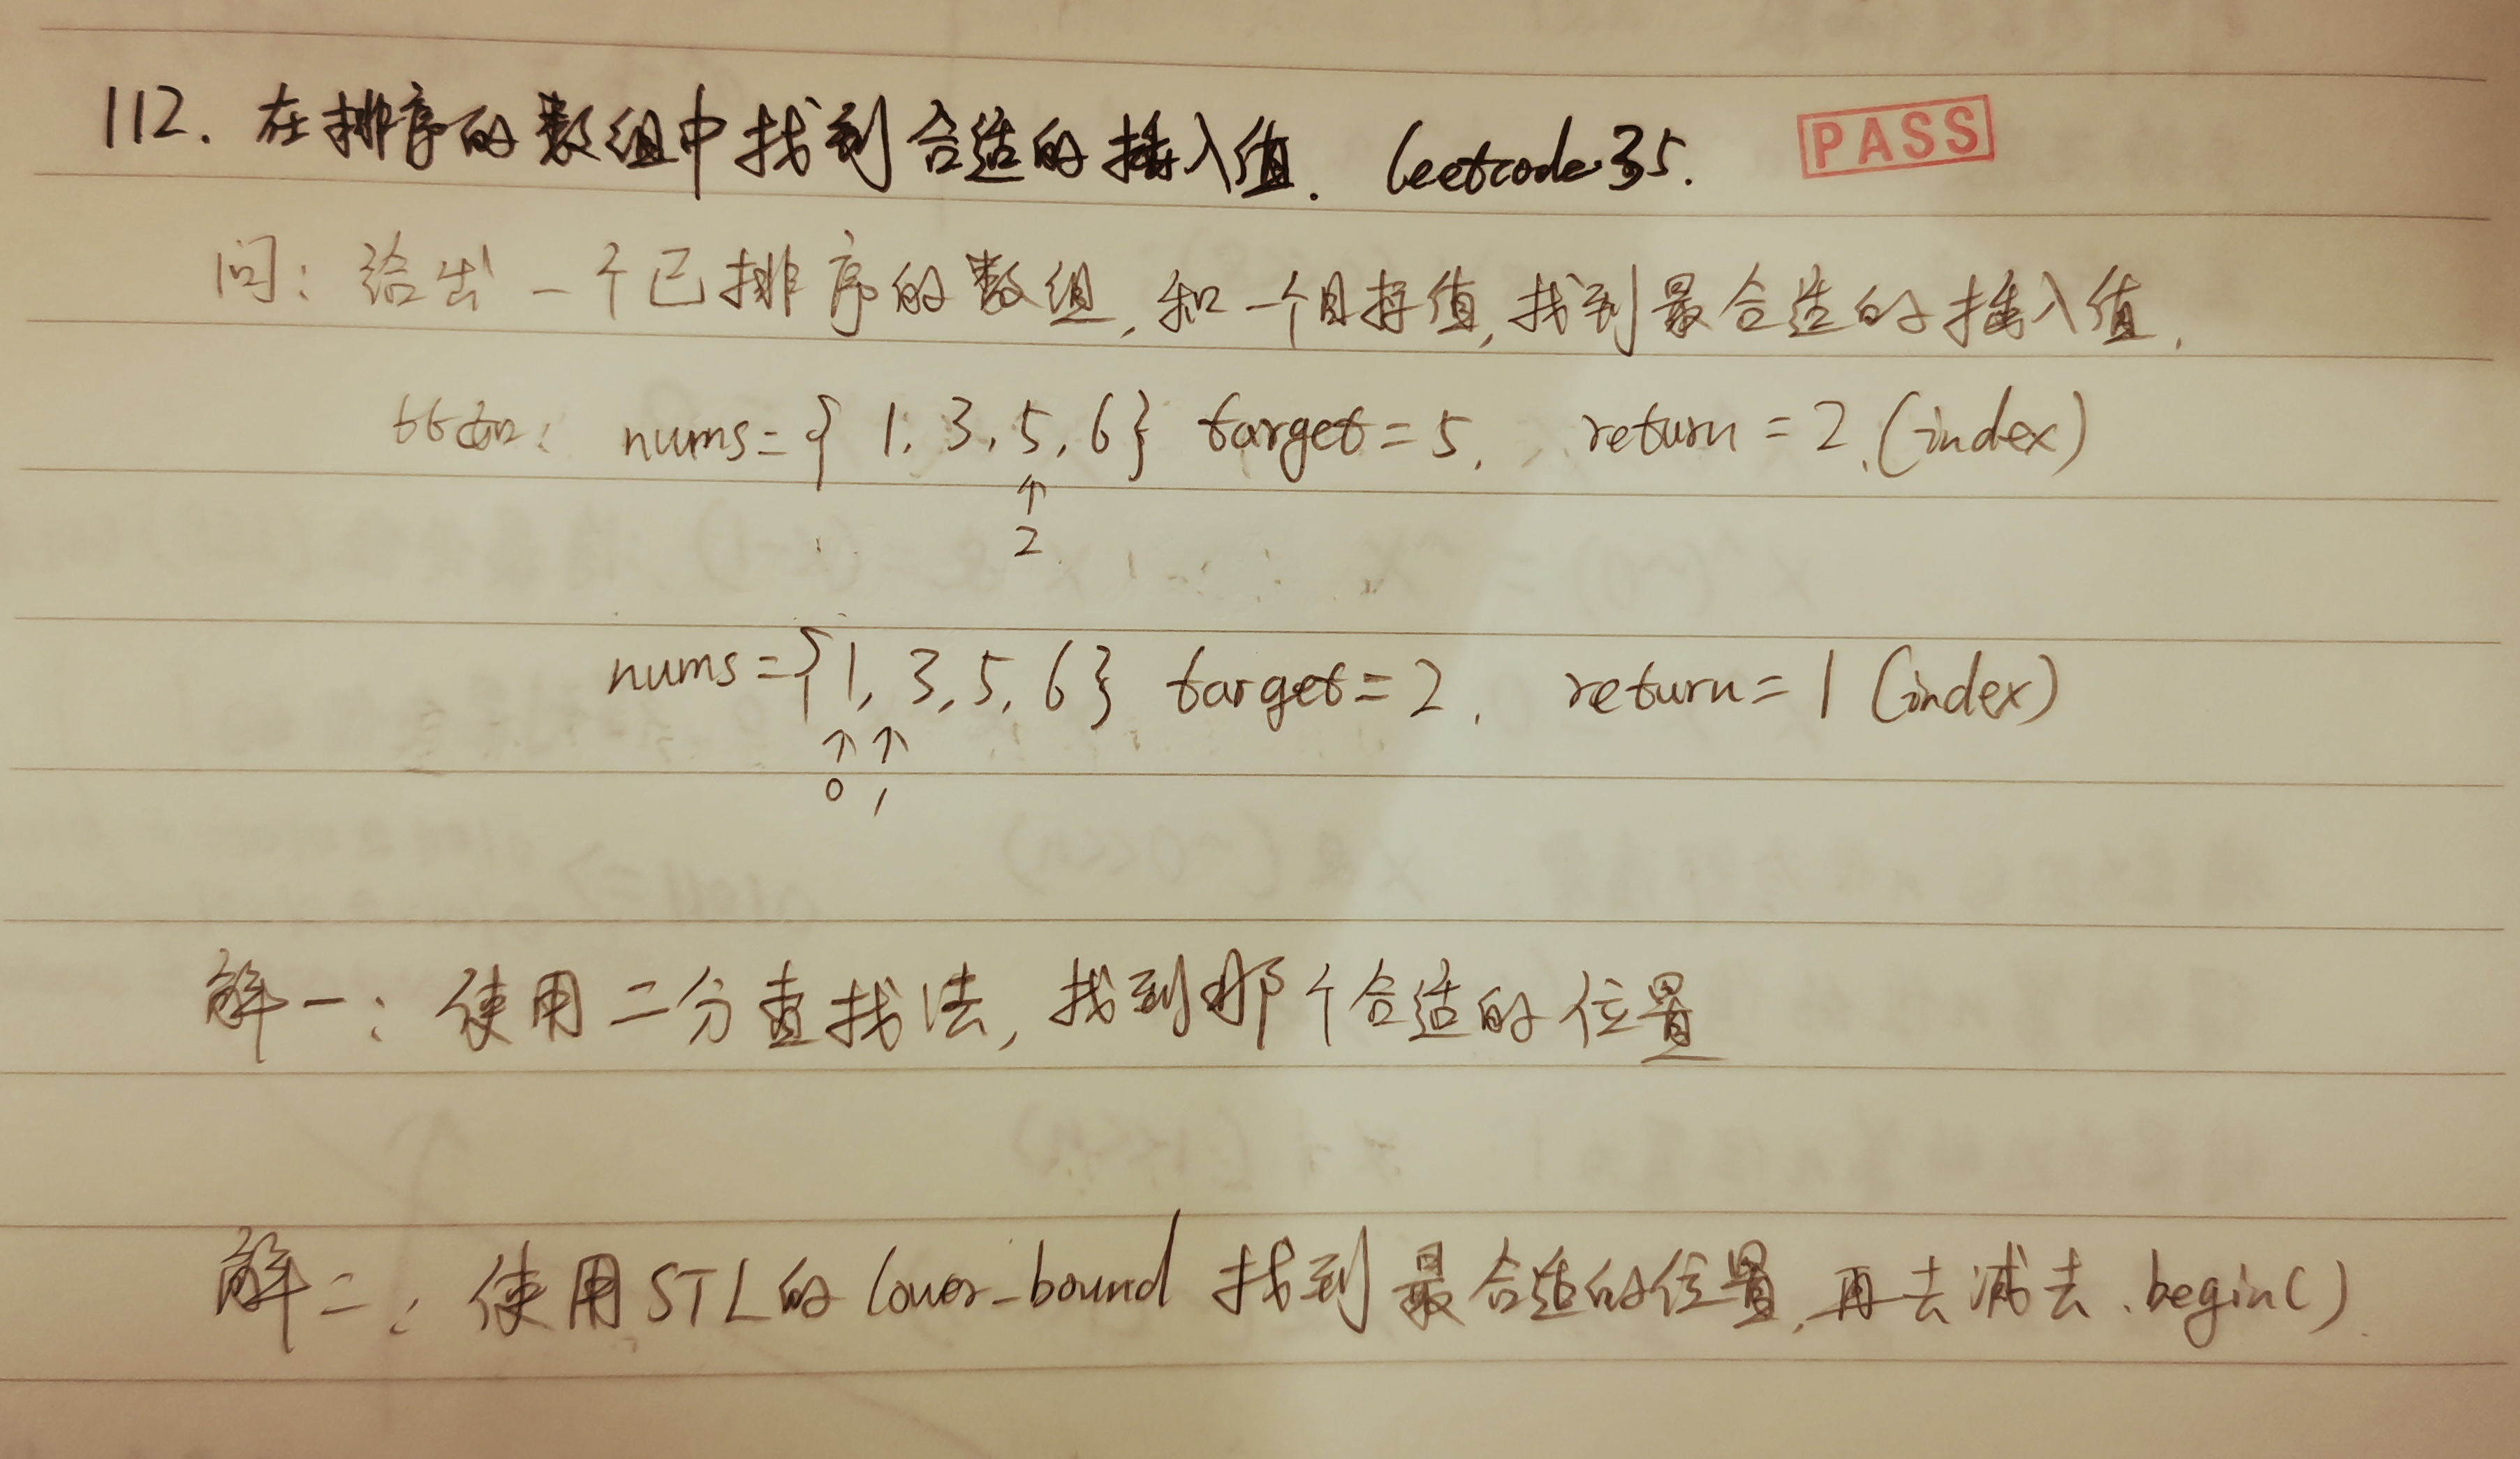 112. 在排序的数组中找到合适的插入值. leetcode 35. PASS
问: 给出一个已排序的数组, 和一个目标值, 找到最合适的插入值.
比如: nums={ 1, 3, 5, 6} target=5, return=2.(index)
↑
2
nums={1, 3, 5, 6} target=2, return=1 (index)
↑ ↑
0 1
解一: 使用二分查找法, 找到那个合适的位置
解二: 使用STL的 lower_bound 找到最合适的位置, 再去减去.begin()